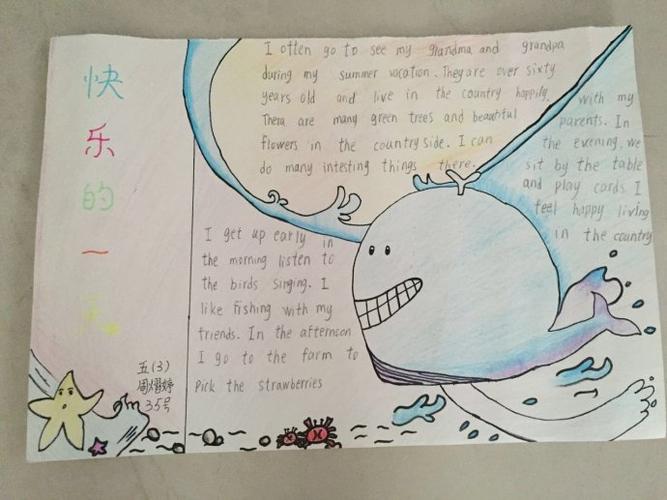 快
乐
的
一
天
I often go to see my grandma and grandpa
during my summer vacation. They are over sixty
years old and live in the country happily.
There are many green trees and beautiful
flowers in the country side. I can
do many intesting things there.
I get up early in
the morning listen to
the birds singing. I
like fishing with my
friends. In the afternoon
I go to the farm to
Pick the strawberries
with my
parents. In
the evening, we
sit by the table
and play cards. I
feel happy living
in the country
五(3)
周熠婷
35号